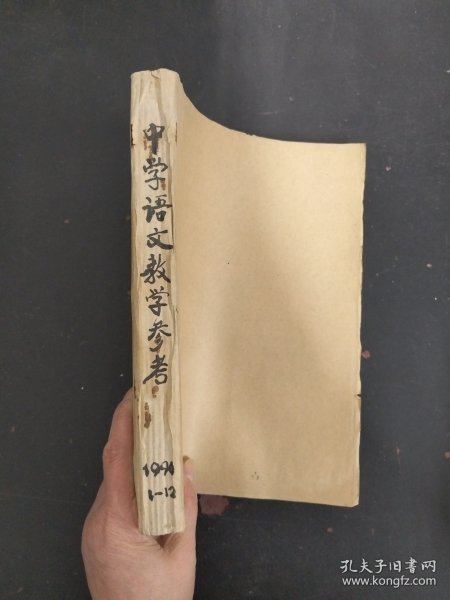 中学语文教学参考
1991
1-12
孔夫子旧书网
www.kongfz.com